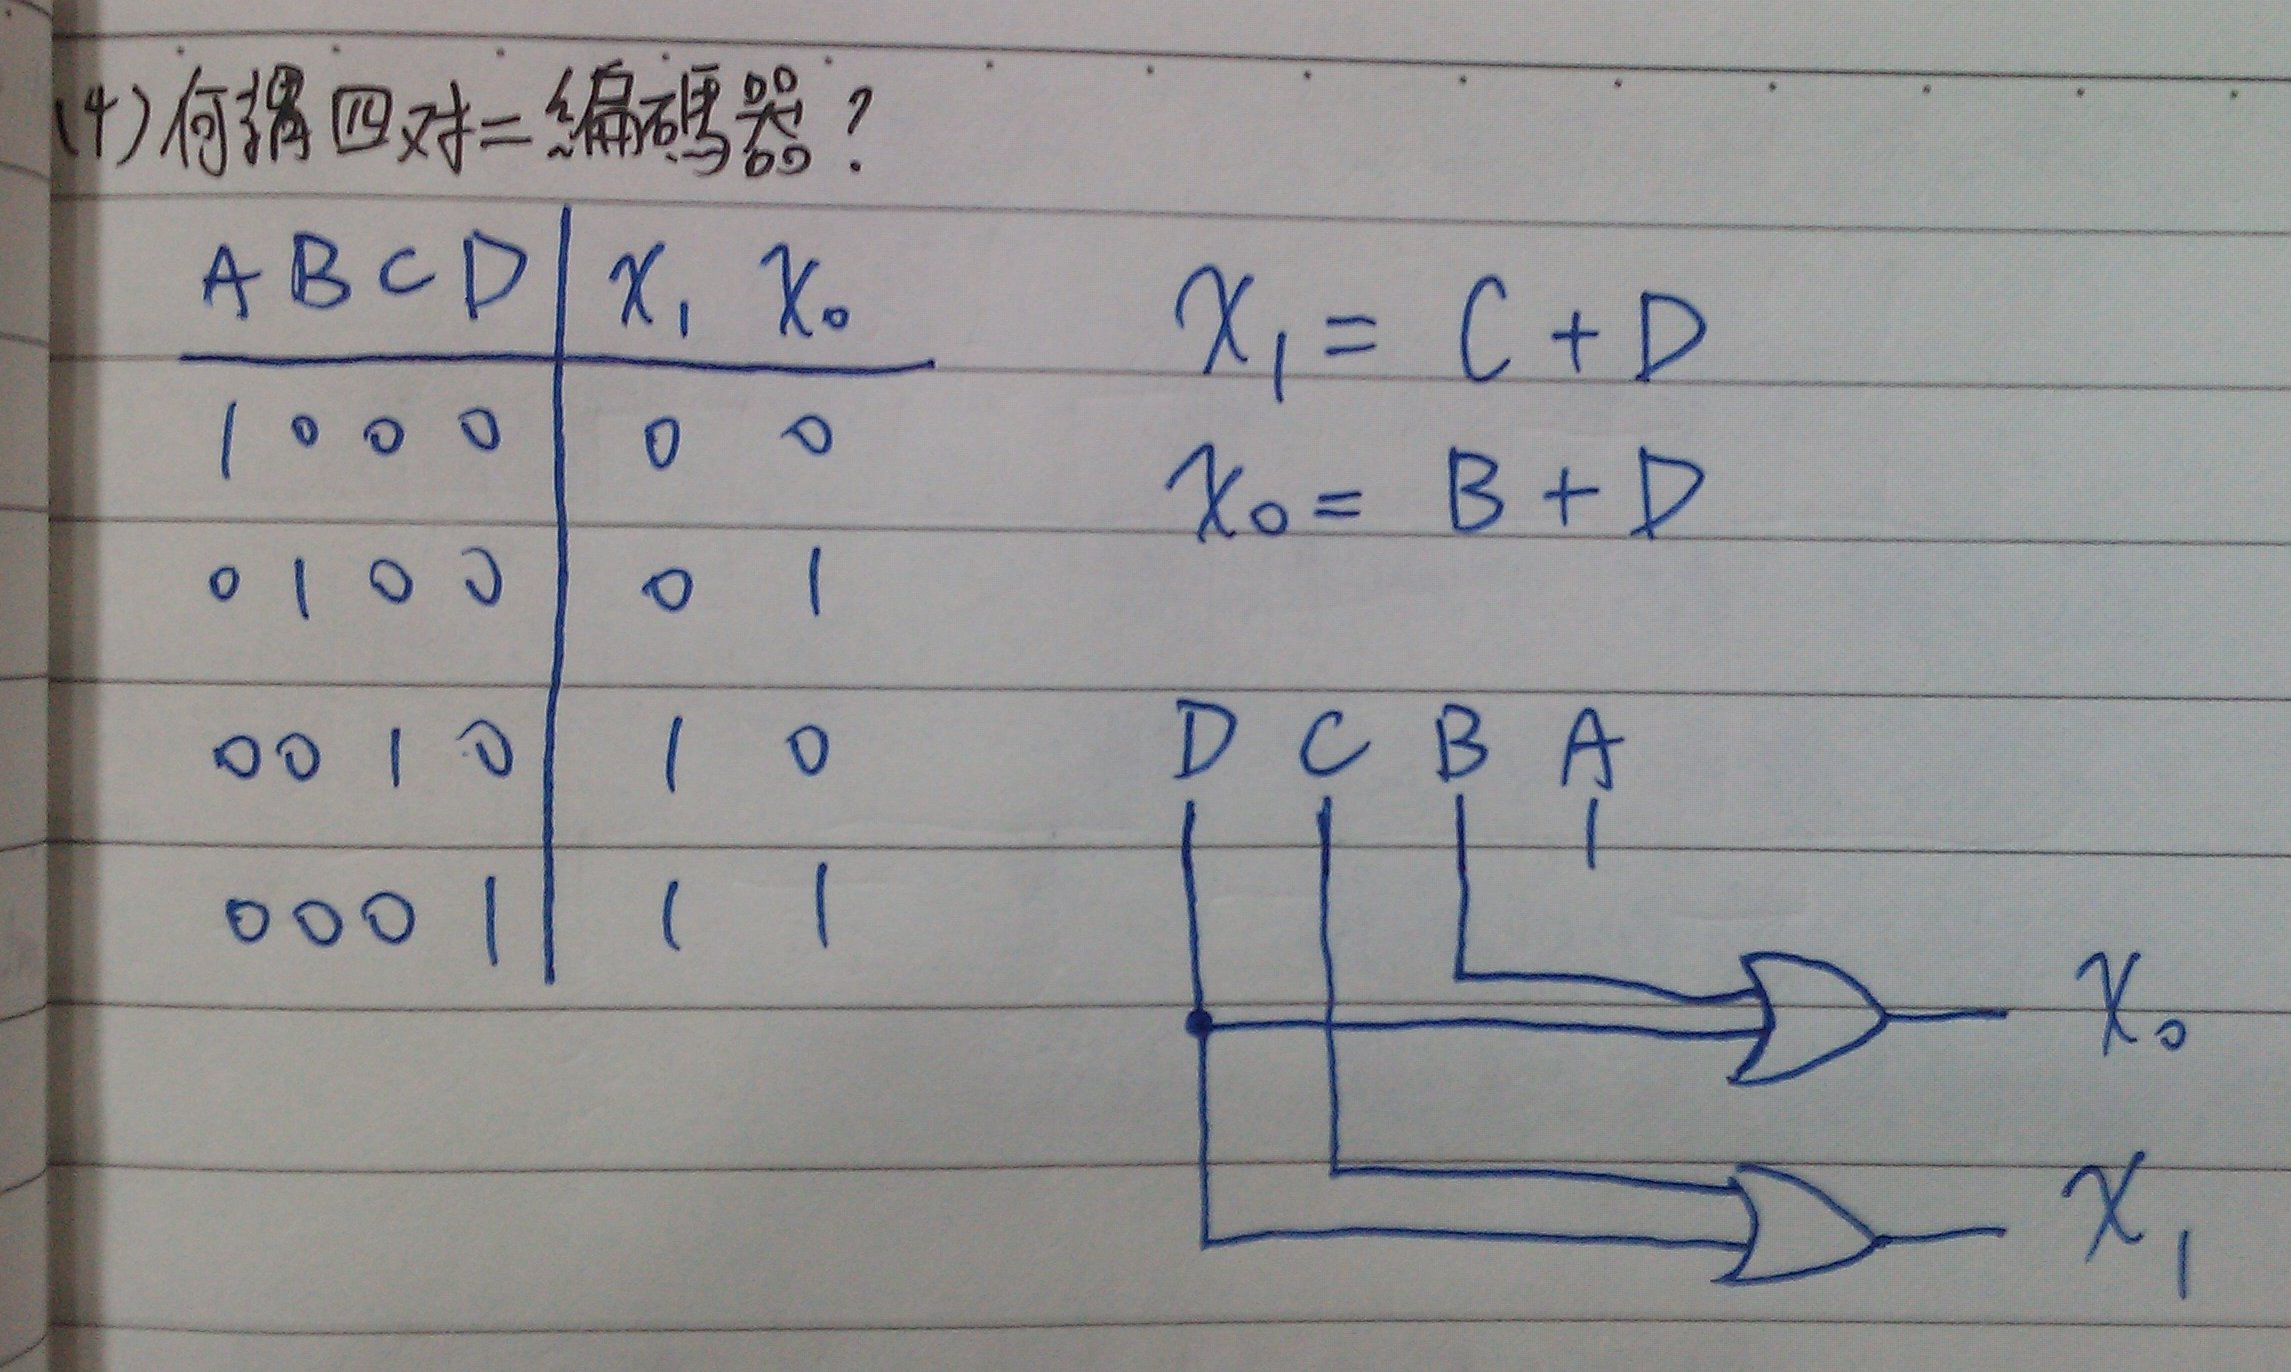 (4) 何謂四对二編碼器?
A B C D X₁ X₀
1 0 0 0 0 0
0 1 0 0 0 1
0 0 1 0 1 0
0 0 0 1 1 1
X₁ = C + D
X₀ = B + D
D C B A
X₀
X₁